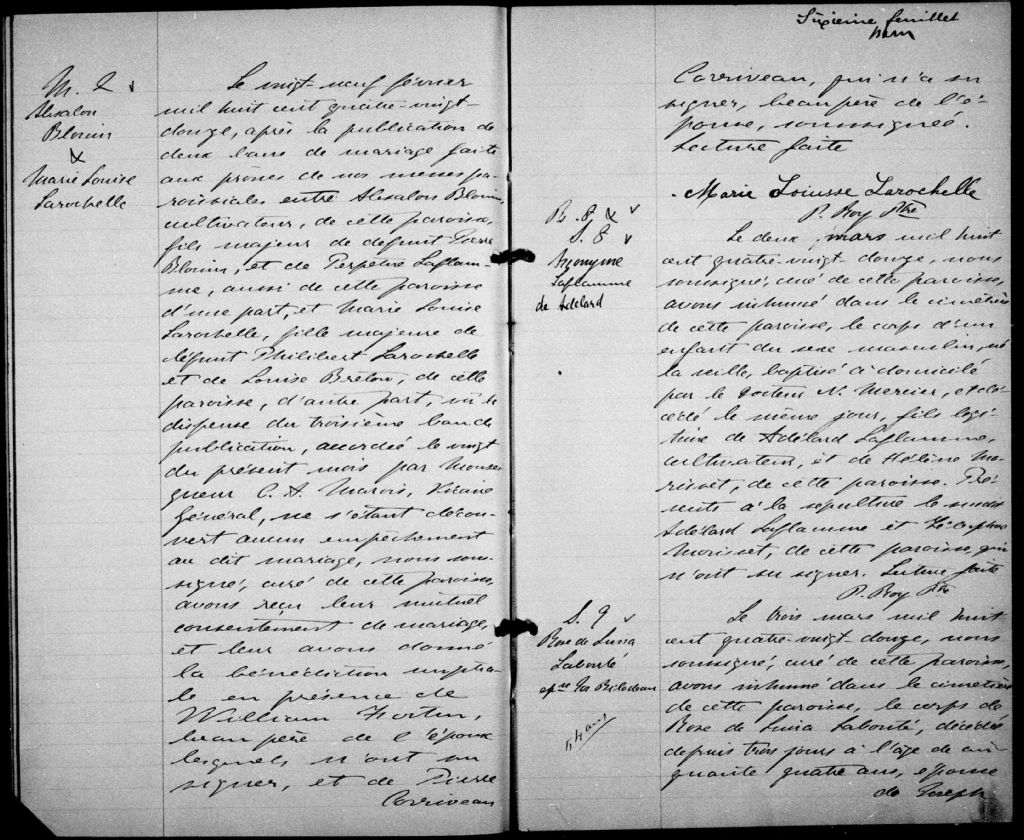 M. 2
Absalon
Blouin
&
Marie Louise
Larochelle
Le vingt-neuf février
mil huit cent quatre-vingt-
douze, après la publication de
deux bans de mariage faite
aux prônes de nos messes pa-
roissiales entre Absalon Blouin,
cultivateur, de cette paroisse,
fils majeur de defunt Pierre
Blouin, et de Perpétue Laflam-
me, aussi de cette paroisse
d'une part, et Marie Louise
Larochelle, fille majeure de
défunt Philibert Larochelle
et de Louise Breton, de cette
paroisse, d'autre part, vu la
dispense du troisième ban de
publication, accordée le vingt
du présent mois par Monsei-
gneur C. A. Marois, Vicaire
Général, ne s'étant décou-
vert aucun empêchement
au dit mariage, nous sous-
signé, curé de cette paroisse,
avons reçu leur mutuel
consentement de mariage,
et leur avons donné
la bénédiction nuptia-
le en présence de
William Fortin,
beau père de l'époux
lesquels n'ont su
signer, et de Pierre
Corriveau
Sixième feuillet
Corriveau, qui n'a su
signer, beau père de l'é-
pouse, soussignée.
Lecture faite
Marie Loiusse Larochelle
P. Roy Ptre
B. 8 &
S. 8
Anonyme
Laflamme
de Adélard
Le deux mars mil huit
cent quatre-vingt douze, nous
soussigné, curé de cette paroisse,
avons inhumé dans le cimetière
de cette paroisse, le corps d'un
enfant du sexe masculin, né
la veille, baptisé à domicile
par le Docteur N. Mercier, et dé-
cédé le même jour, fils légi-
time de Adélard Laflamme,
cultivateur, et de Hélène Mo-
risset, de cette paroisse. Pré-
sents à la sépulture le susdit
Adélard Laflamme et Télesphore
Morisset, de cette paroisse, qui
n'ont su signer. Lecture faite
P. Roy Ptre
S. 9
Rose de Lima
Labonté
epse Jos Bilodeau
54 ans
Le trois mars mil huit
cent quatre-vingt douze, nous
soussigné, curé de cette paroisse,
avons inhumé dans le cimetière
de cette paroisse, le corps de
Rose de Lima Labonté, décédée
depuis trois jours à l'âge de cin-
quante quatre ans, épouse
de Joseph